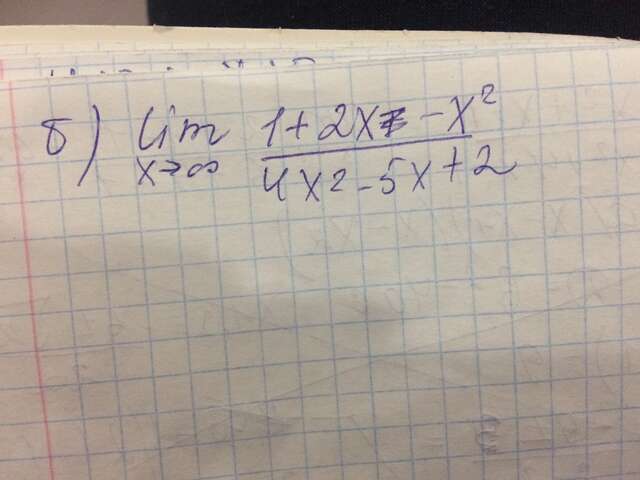 б) lim 1+2x-x²
x→∞ 4x²-5x+2